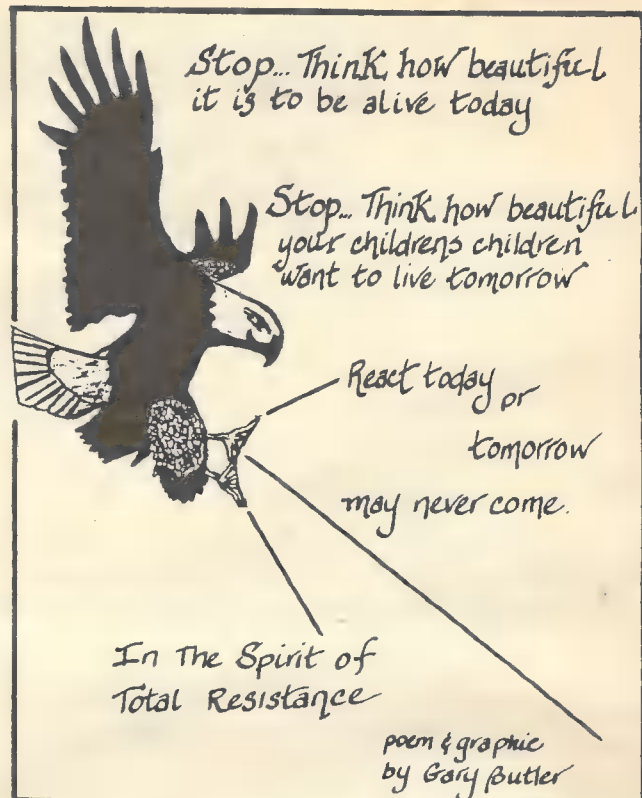 Stop... Think, how beautiful
it is to be alive today
Stop... Think, how beautiful
your childrens children
want to live tomorrow
React today or
tomorrow
may never come.
In The Spirit of
Total Resistance
poem & graphic
by Gary Butler